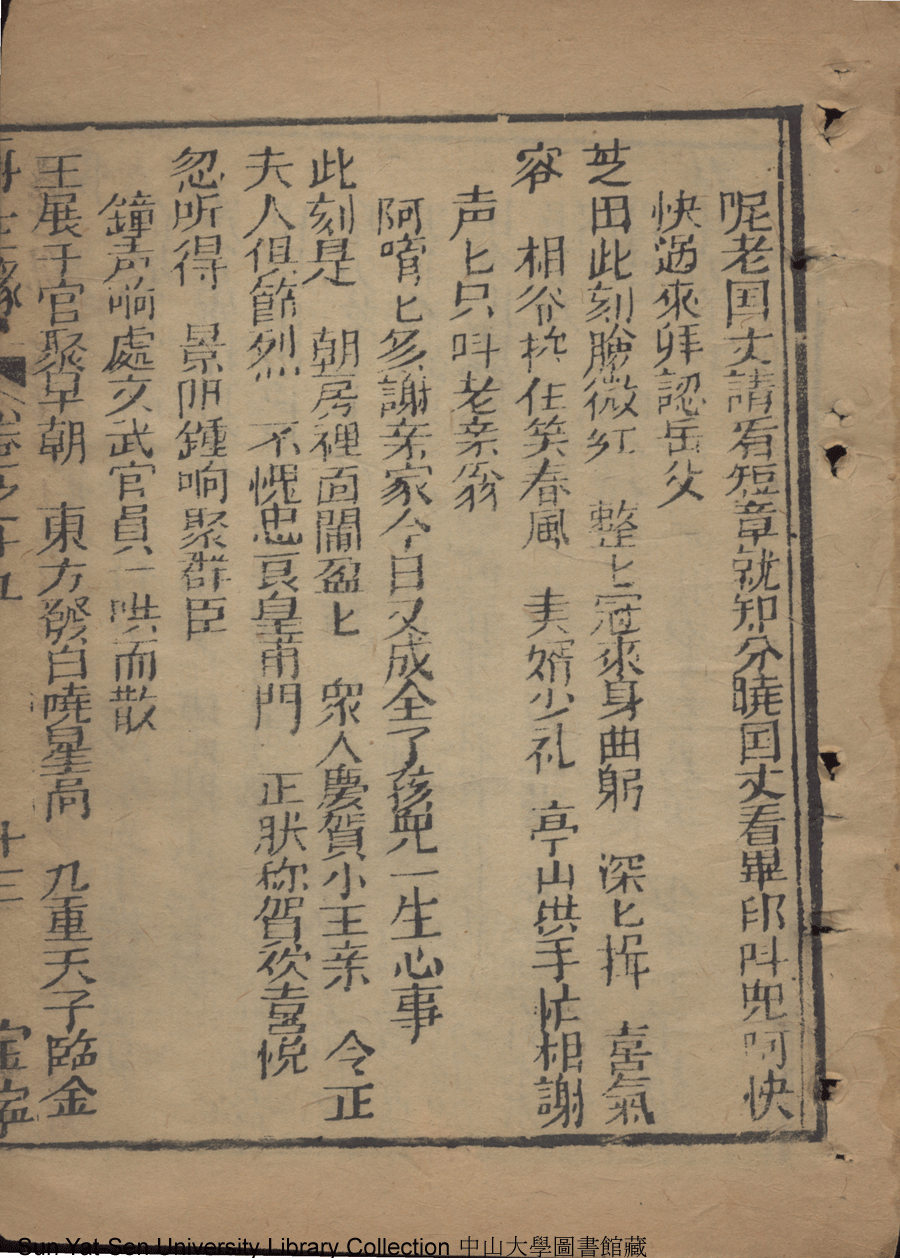 呢老国丈請看短章就知分曉国丈看畢即叫兜呵快
快過來拜認岳父
芝田此刻臉微紅　整匕冠來身曲躬　深匕揖　喜氣
容　相爷扯住笑春風　夫婿少礼　亭山拱手忙相謝
声匕只叫老亲翁
阿唷匕多謝亲家今日又成全了孩兜一生心事
此刻是　朝房裡面鬧盈匕　衆人慶賀小王亲　令正
夫人俱節烈　不愧忠良皇甫門　正肰称賀欢喜悦
忽听得　景陽鍾响聚群臣
鐘声响處文武官員一哄而散
王展千官聚早朝　東方發白曉星局　九重天子臨金
再生緣　卷之十九　廿三
Sun Yat Sen University Library Collection 中山大學圖書館藏